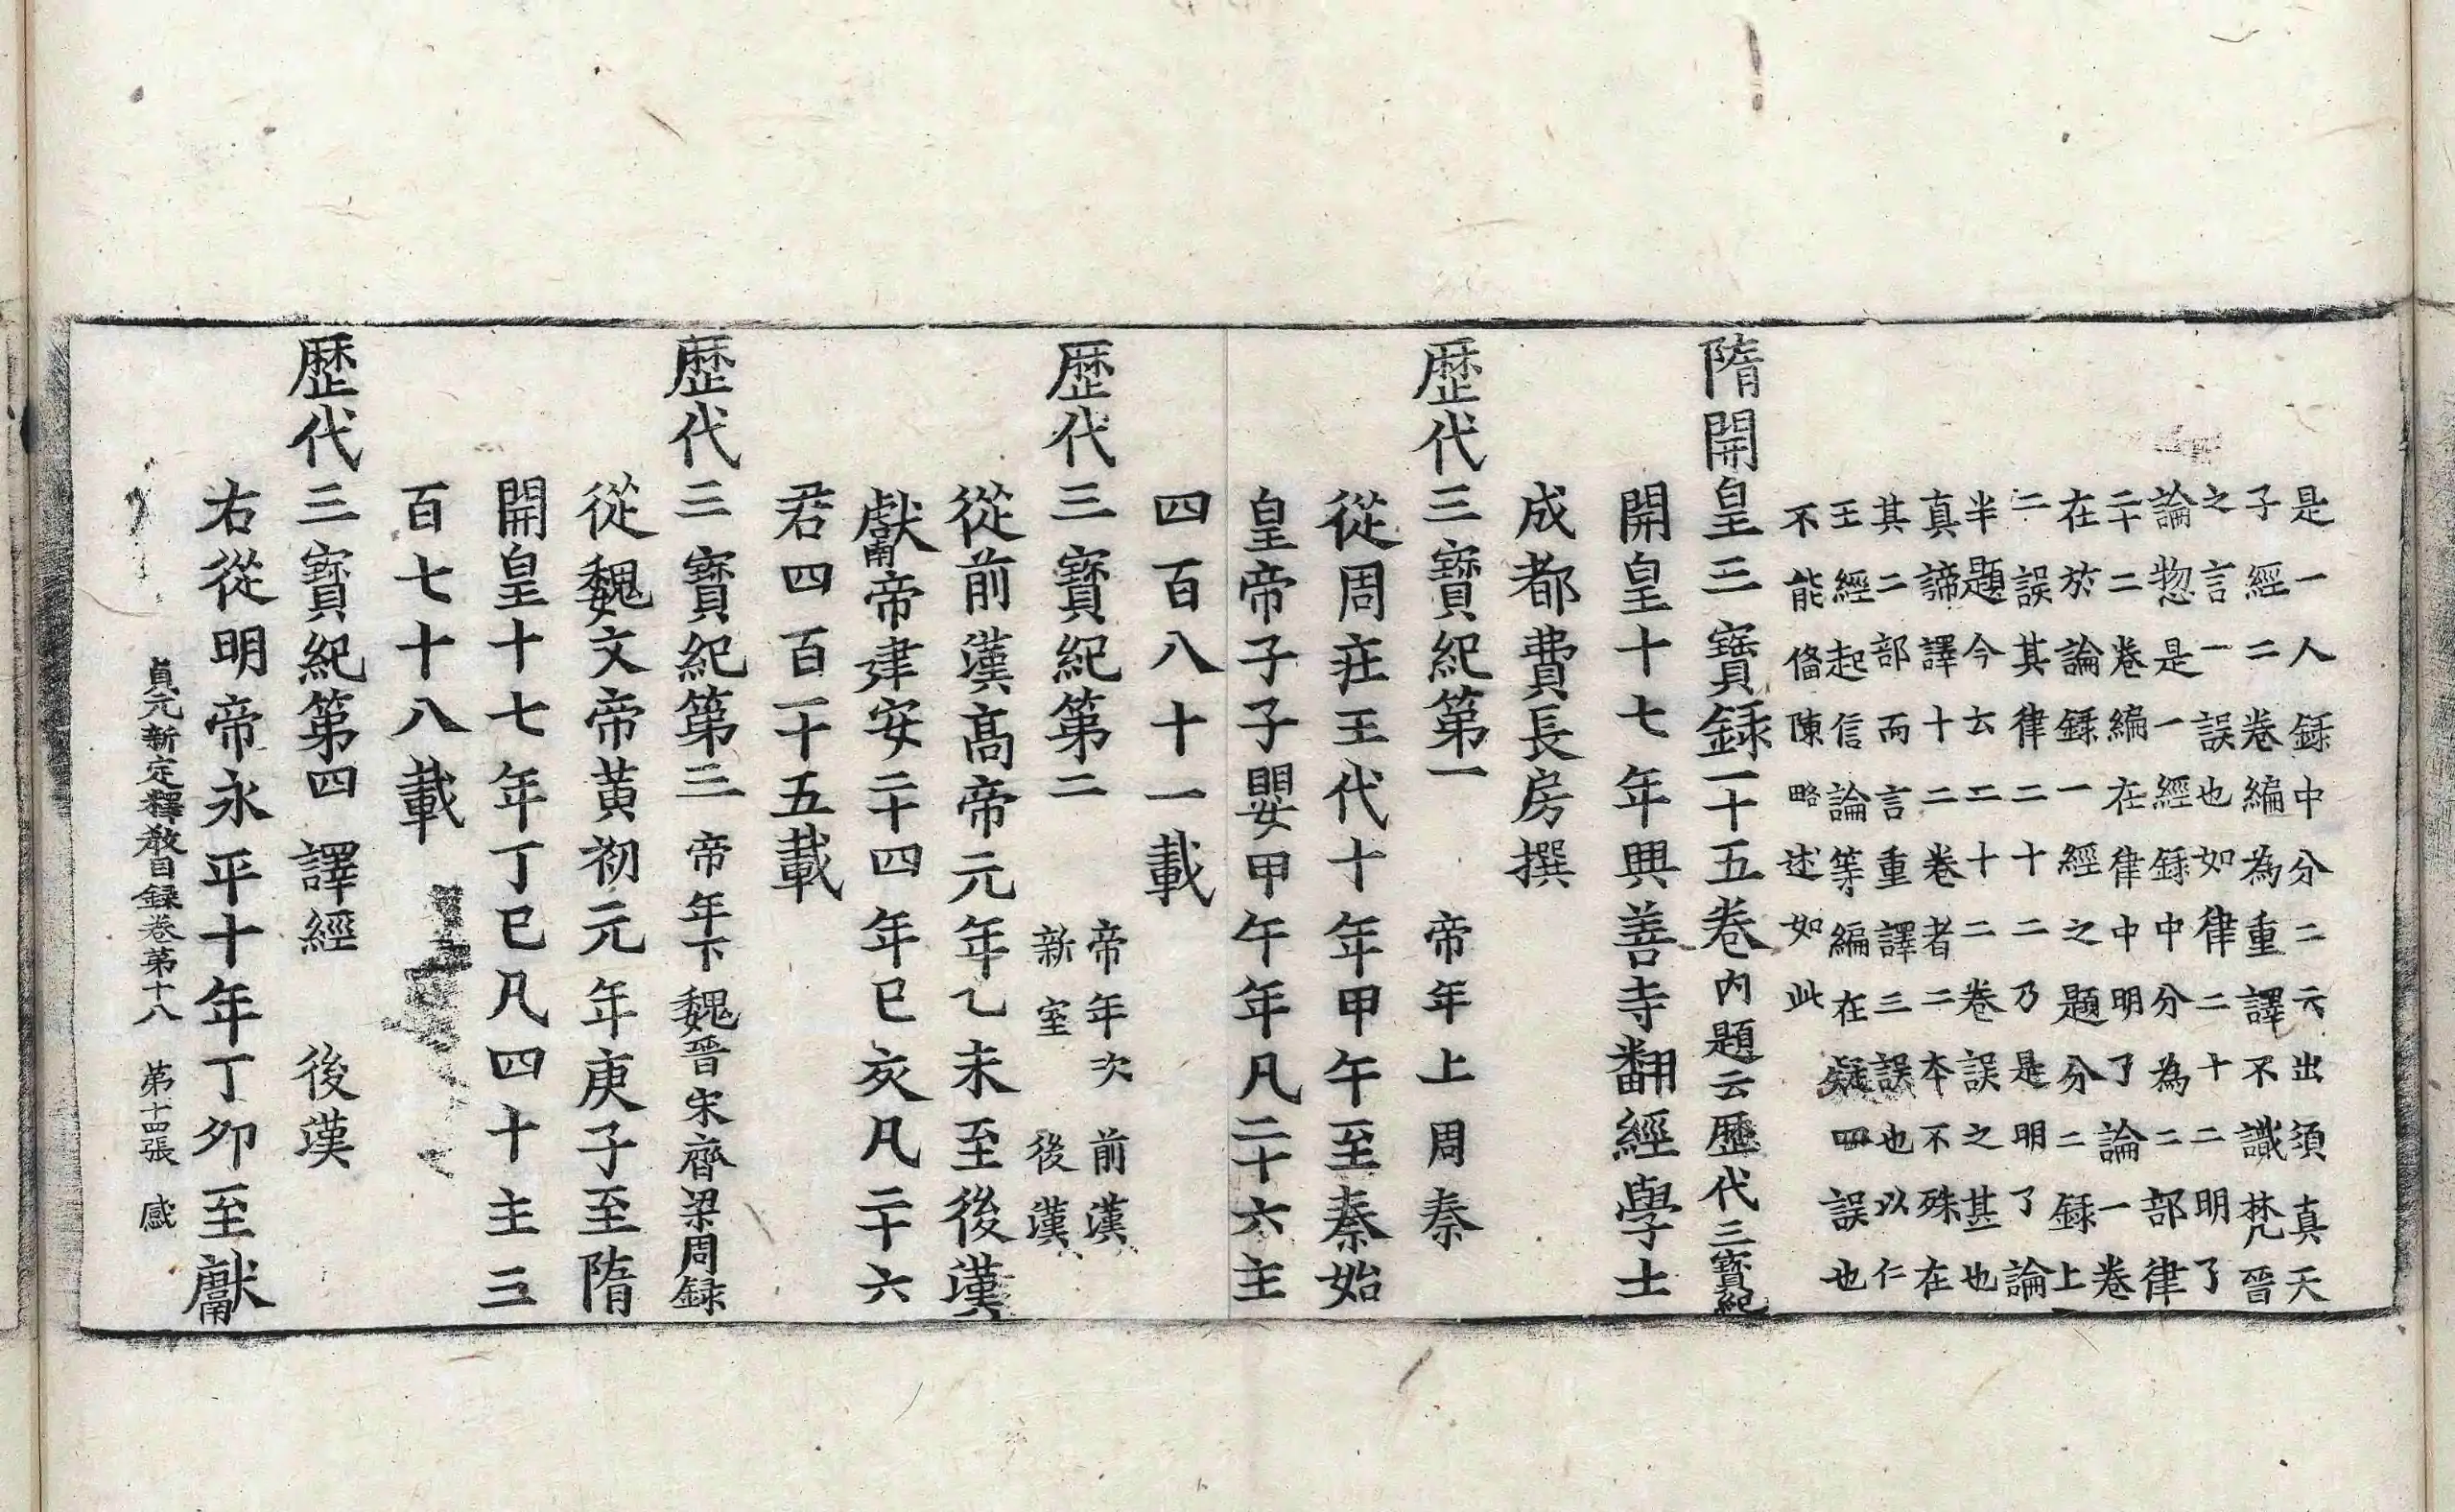 是一人録中分二云出須真天
子經二卷編為重譯不識梵晉
之言一誤也如律二十二明了
論惣是一經録中分為二部律
二十二卷編在律中明了論一卷
在於論録一經之題分二録上
二誤其律二十二乃是明了論
半題今云二十二卷誤之甚也
真諦譯十二卷者二本不殊在
其二部而言重譯三誤也以仁
王經起信論等編在疑四誤也
不能俻陳略述如此
隋開皇三寶録一十五卷内題云歷代三寶紀
開皇十七年興善寺翻經學士
成都費長房撰
歷代三寶紀第一 帝年上周秦
從周莊王代十年甲午至秦始
皇帝子子嬰甲午年凡二十六主
四百八十一載
歷代三寶紀第二 帝年次前漢
新室後漢
從前漢高帝元年乙未至後漢
獻帝建安二十四年巳亥凡二十六
君四百一十五載
歷代三寶紀第三 帝年下魏晉宋齊梁周録
從魏文帝黃初元年庚子至隋
開皇十七年丁巳凡四十主三
百七十八載
歷代三寶紀第四 譯經 後漢
右從明帝永平十年丁卯至獻
貞元新定釋教目録卷第十八 第十四張 感